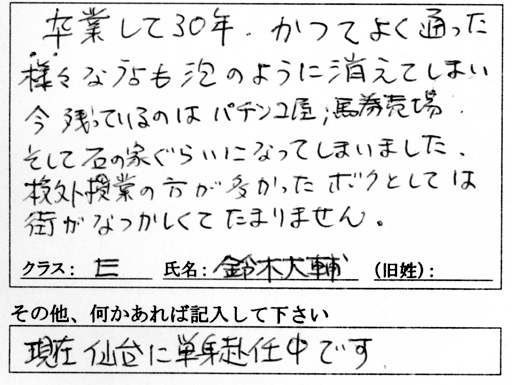 卒業して30年、かつてよく通った
様々な店も泡のように消えてしまい
今残っているのはパチンコ屋、馬券売場、
そして石の家ぐらいになってしまいました、
校外授業の方が多かったボクとしては
街がなつかしくてたまりません。
クラス： E 氏名：鈴木大輔 （旧姓）：
その他、何かあれば記入して下さい
現在仙台に単身赴任中です